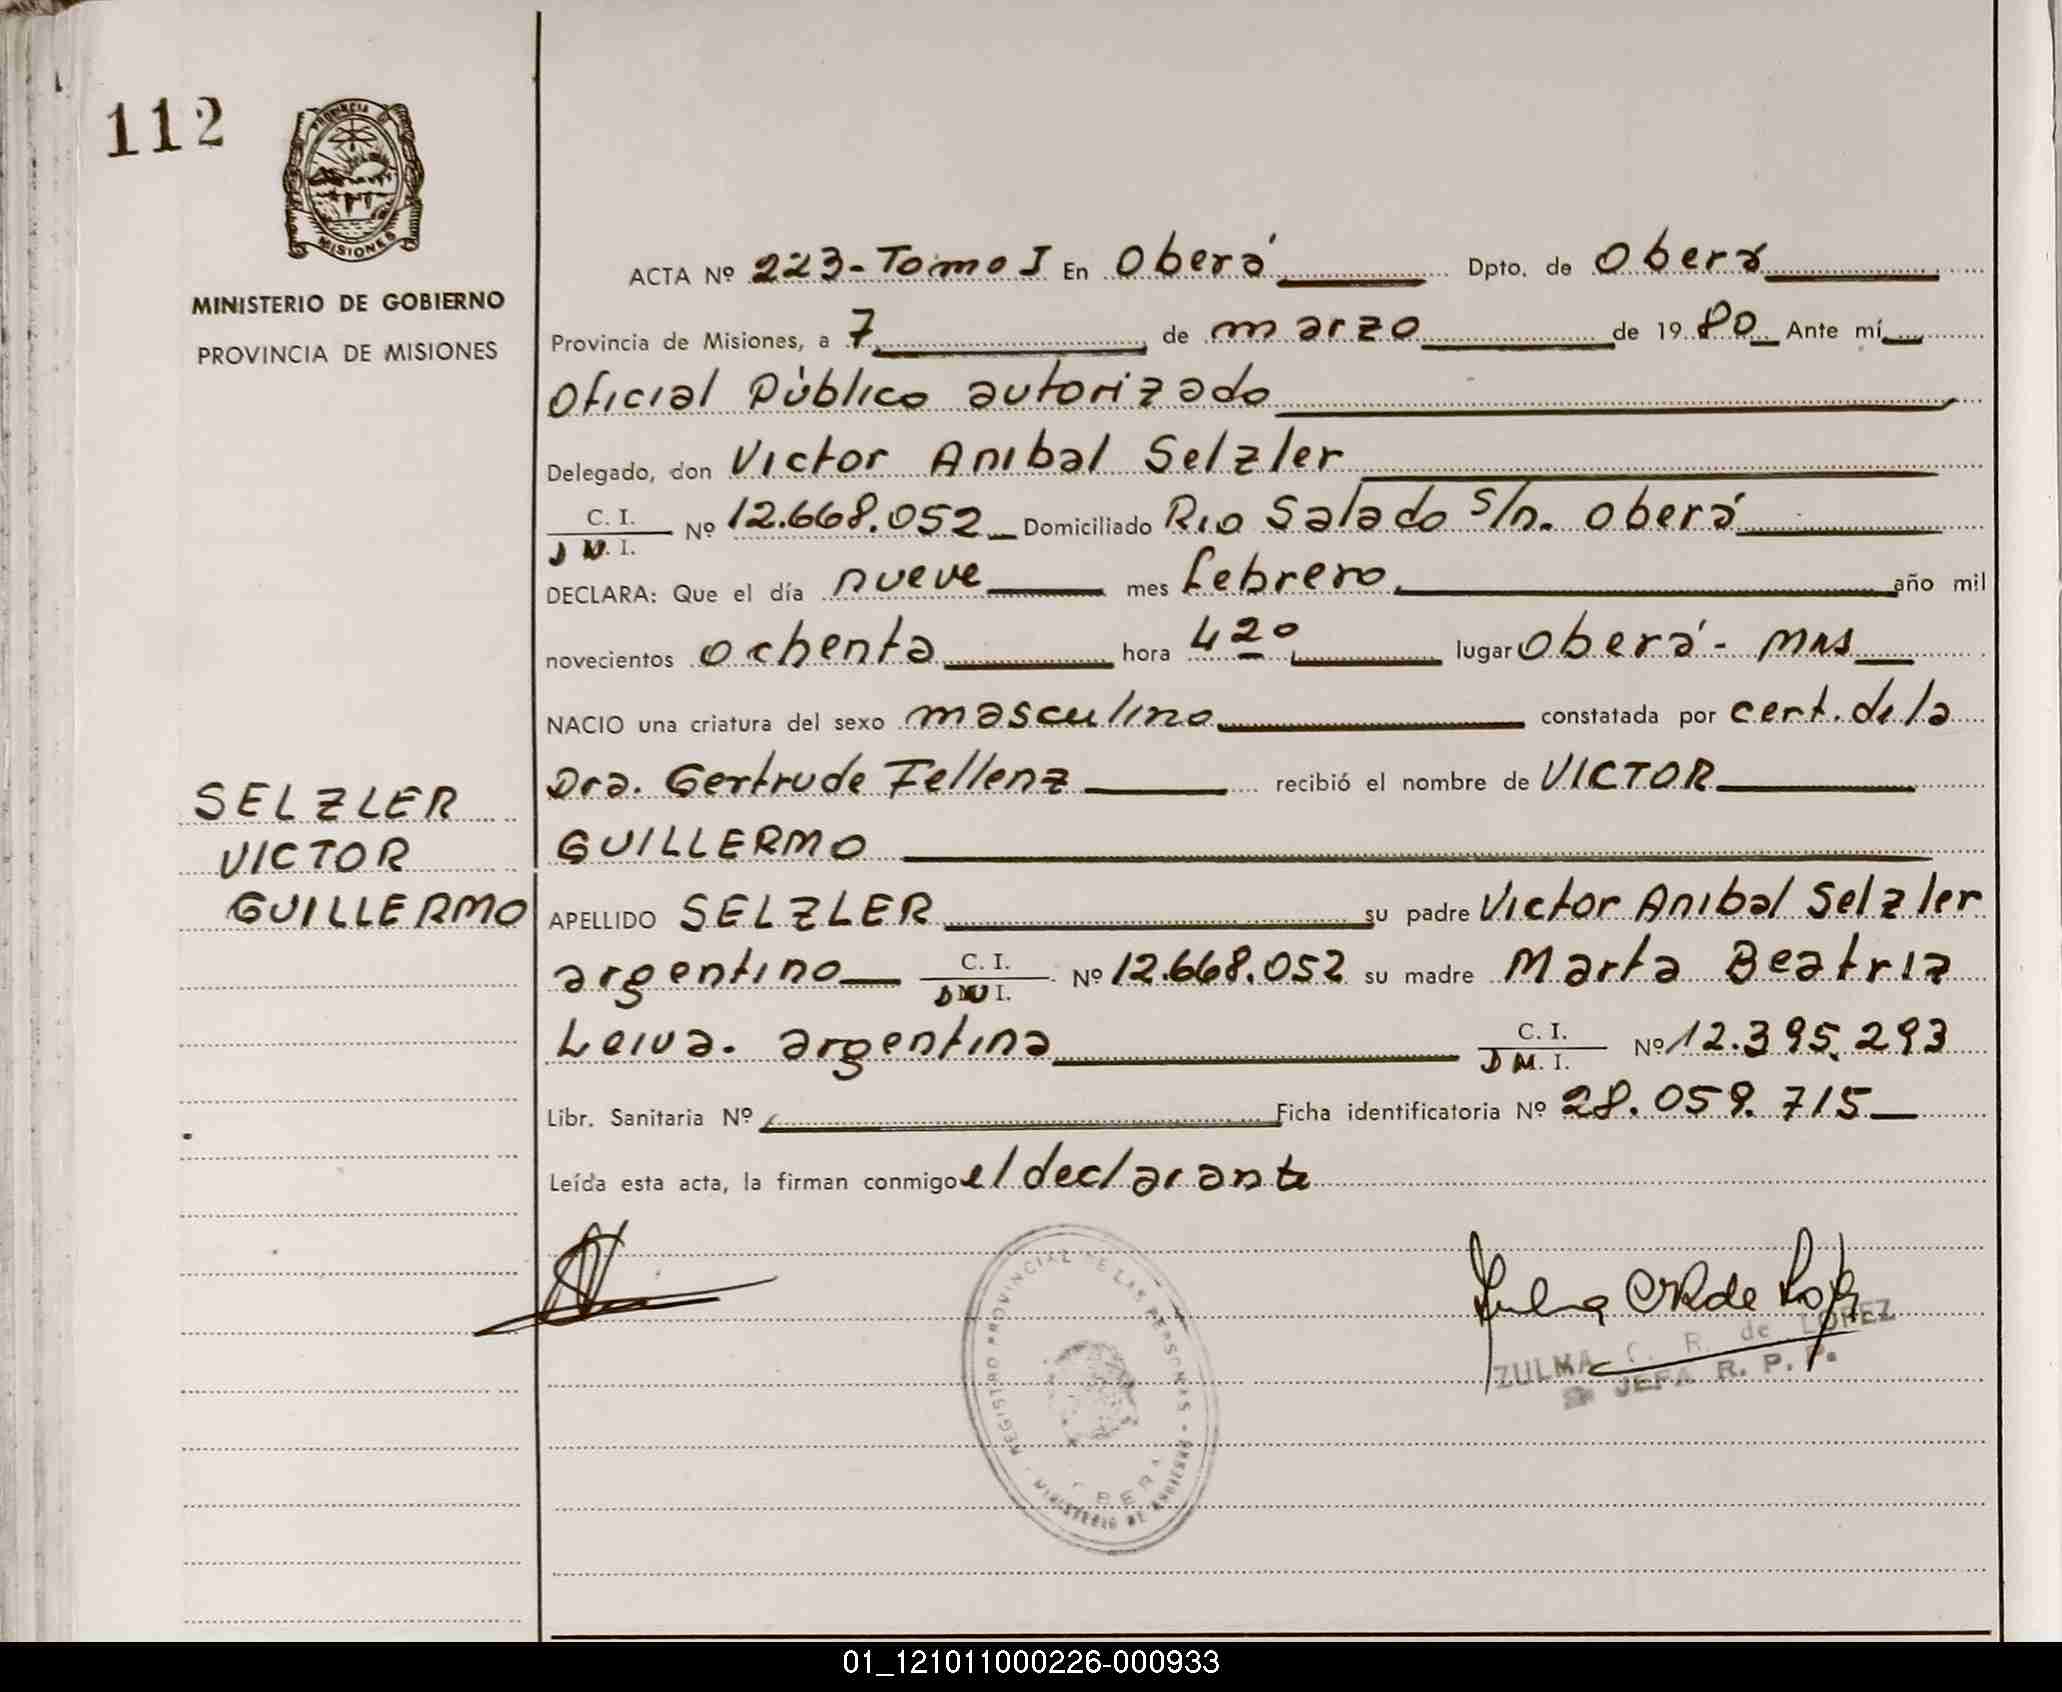 112
PROVINCIA DE
MISIONES
MINISTERIO DE GOBIERNO
PROVINCIA DE MISIONES
ACTA Nº 223-Tomo I En Oberá Dpto. de Oberá
Provincia de Misiones, a 7 de marzo de 1980 Ante mí
Oficial Público autorizado
Delegado, don Victor Anibal Selzler
C. I.
D.N.I. Nº 12.668.052 Domiciliado Rio Salado s/n. Oberá
DECLARA: Que el día nueve mes febrero año mil
novecientos ochenta hora 4 20 lugar Oberá - Mns
NACIO una criatura del sexo masculino constatada por cert. de la
Dra. Gertrude Fellenz recibió el nombre de VICTOR
GUILLERMO
SELZLER
VICTOR
GUILLERMO
APELLIDO SELZLER su padre Victor Anibal Selzler
argentino C. I. Nº 12.668.052 su madre Marta Beatriz
D.N.I.
Leiva. argentina C. I. Nº 12.395.293
D.N.I.
Libr. Sanitaria Nº Ficha identificatoria Nº 28.059.715
Leída esta acta, la firman conmigo el declarante
REGISTRO PROVINCIAL DE LAS PERSONAS - MINISTERIO DE GOBIERNO
OBERA
Zulma C R de López
ZULMA C. R. de LOPEZ
JEFA R. P. P.
01_121011000226-000933